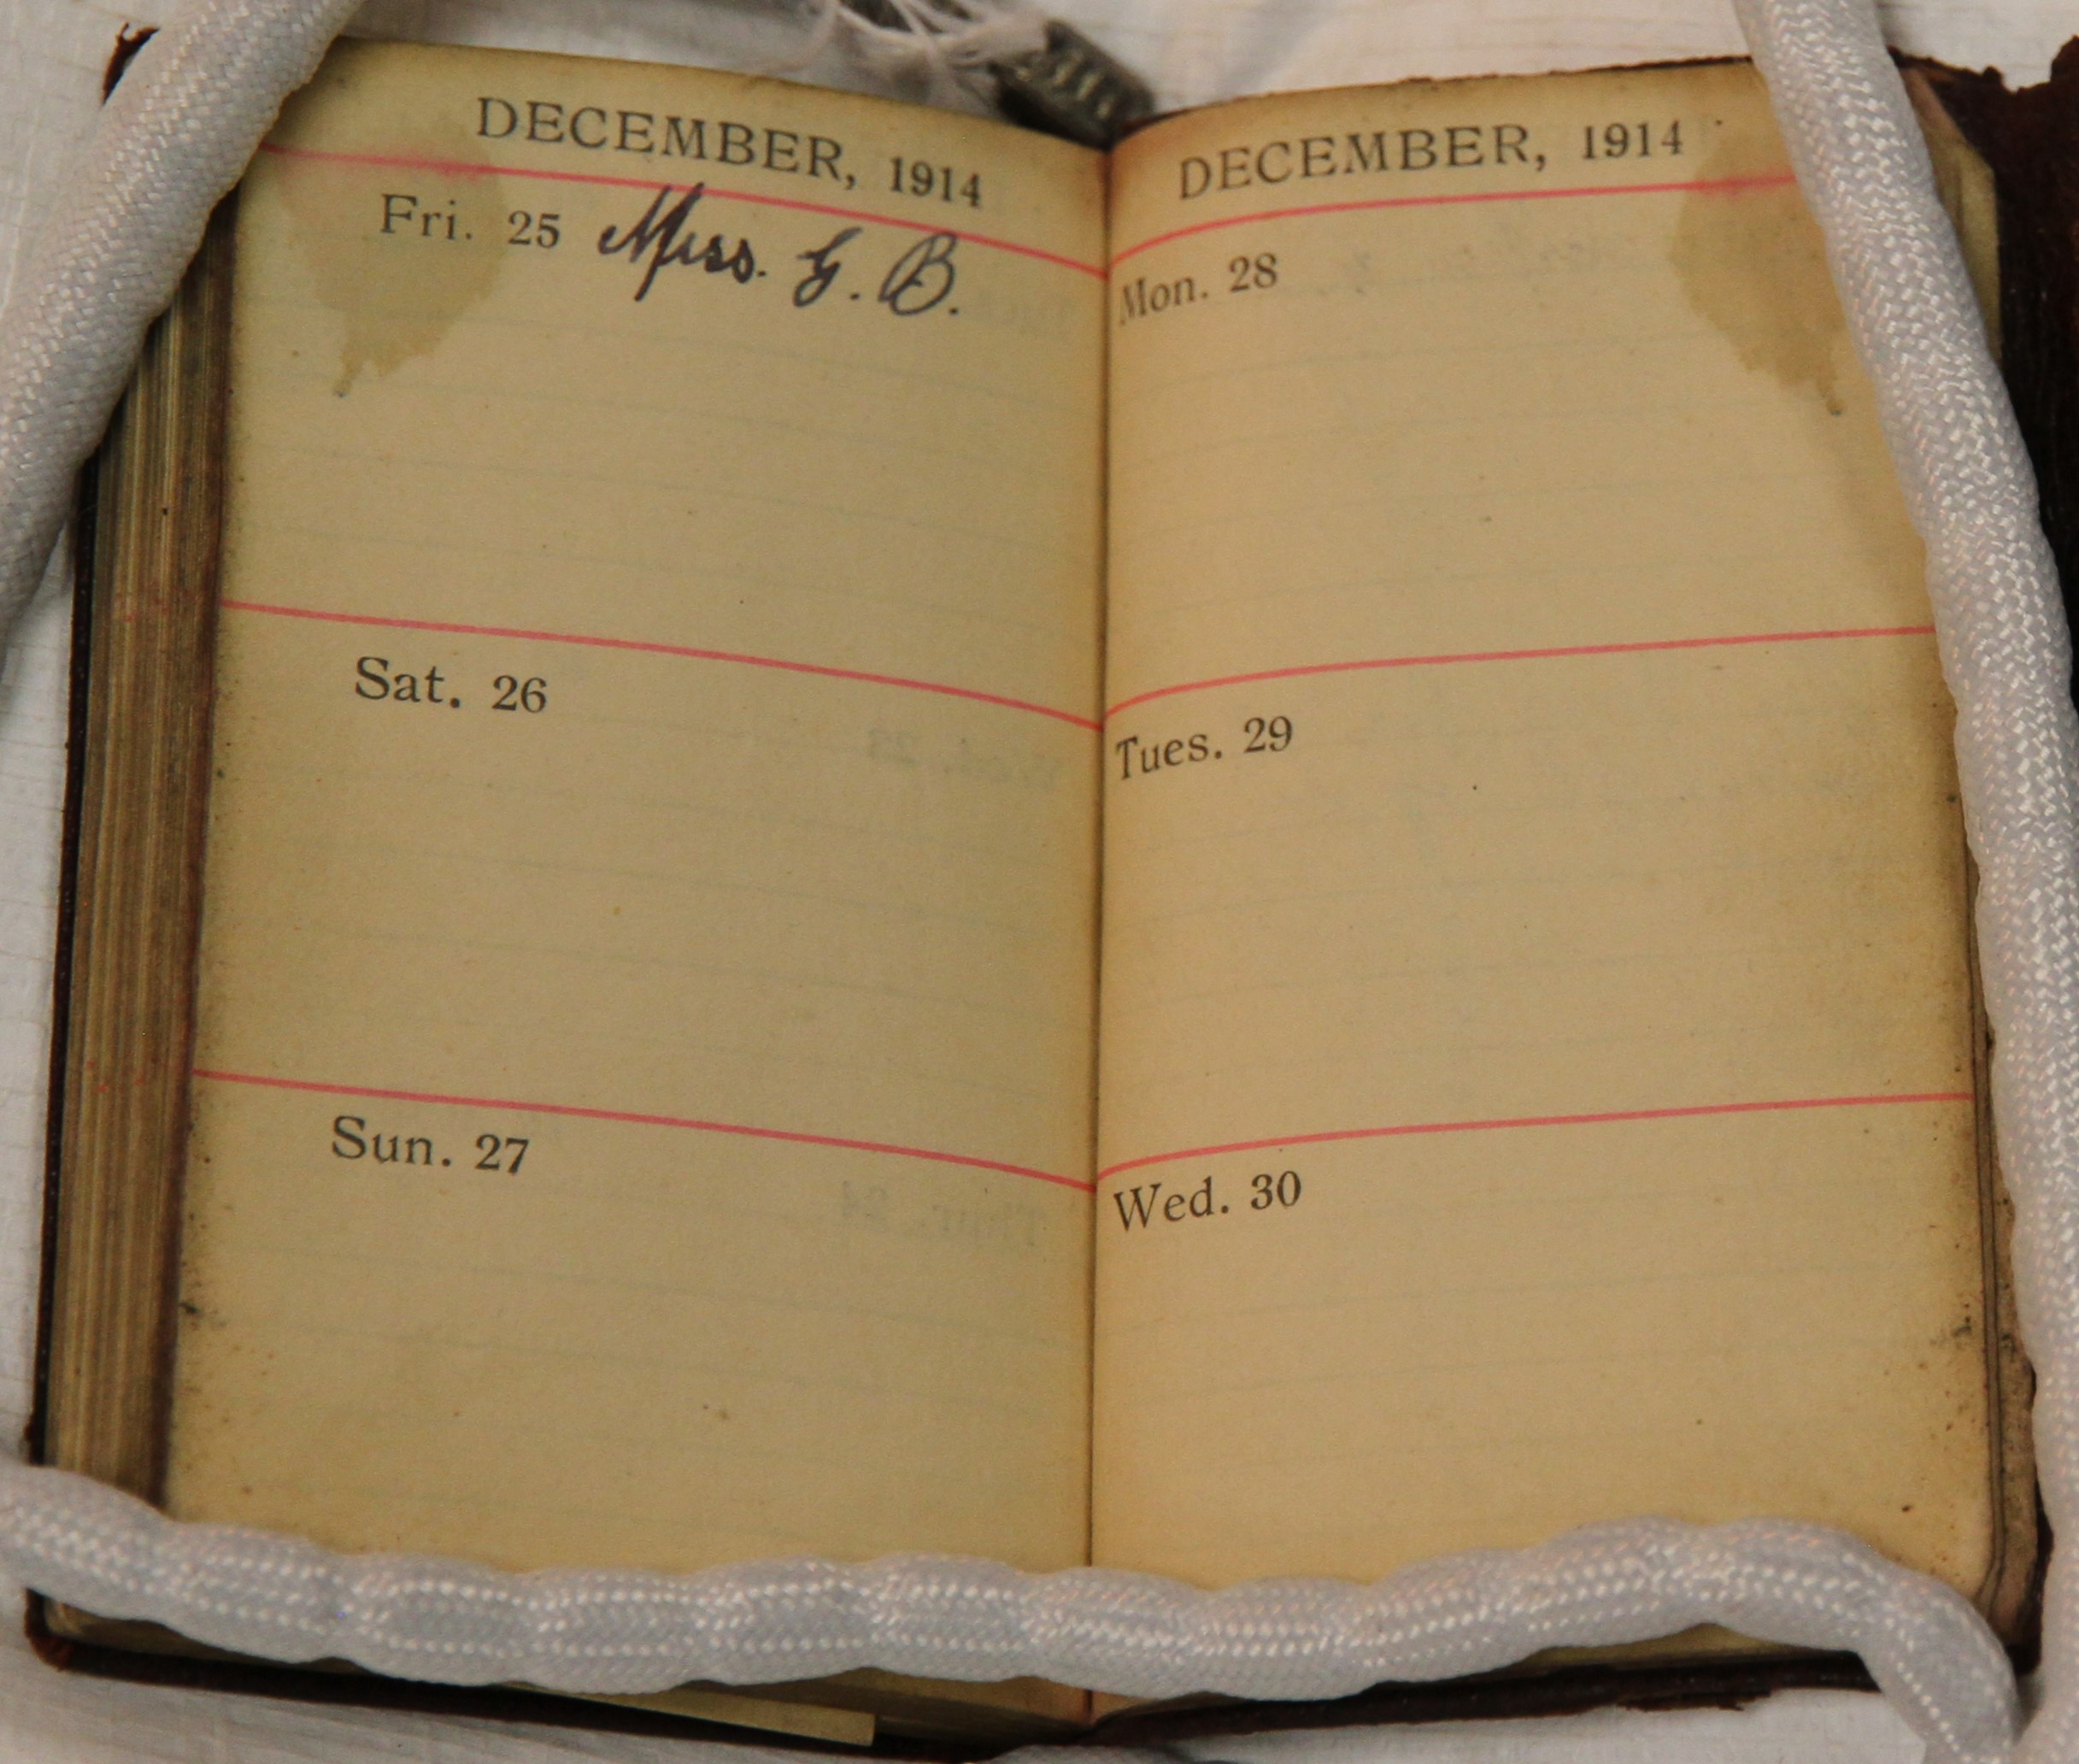 DECEMBER, 1914
Fri. 25 Miss. G. B.
Sat. 26
Sun. 27
DECEMBER, 1914
Mon. 28
Tues. 29
Wed. 30